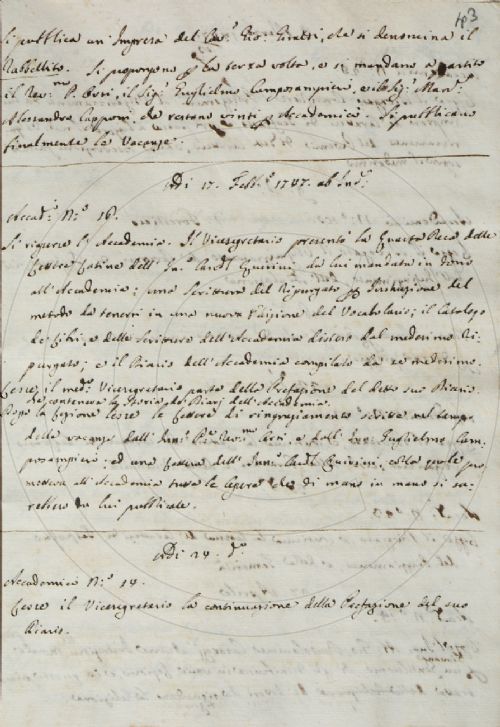 43
Si pubblica un'Impresa del Cav.e Gio: Giraldi, che si denomina il
Rabbellito. Si propongono p la terza volta, e si mandano a partito
il Rev.mo P. Orsi, il Sig: Guglielmo Camposampiero, e il Sig: March.
Alessandro Capponi, che restano vinti p Accademici. Si pubblicano
finalmente le Vacanze.
A Di 17. Febb.o 1747. ab Inc.e
Accad.i N.o 16.
Si riapre l'Accademia. Il Vicesegretario presentò la Quarta Deca delle
Lettere Latine dell' Em.o Card.l Quirini, da lui mandata in dono
all'Accademia; una Scrittura del Ripurgato p Instruzione del
metodo da tenersi in una nuova Edizione del Vocabolario; il Catalogo
de' Libri, e delle Scritture dell'Accademia disteso dal medesimo Ri-
purgato; e il Diario dell'Accademia compilato da se medesimo.
Lesse il med.o Vicesegretario parte della Prefazione del detto suo Diario.
che conteneva la Storia de' Diarj dell'Accademia.
Dopo la Lezione lesse le Lettere di ringraziamento scritte nel tempo
delle vacanze dall' P.re Rev.mo Orsi, e dall' Guglielmo Cam-
posampiero; ed una Lettera dell' Em.o Card.l Quirini, colla quale pro-
metteva all'Accademia tutte le Opere che di mano in mano si sa-
rebbero da lui pubblicate.
A Di 24. d.o
Accademici N.o 14.
Lesse il Vicesegretario la continuazione della Prefazione del suo
Diario.